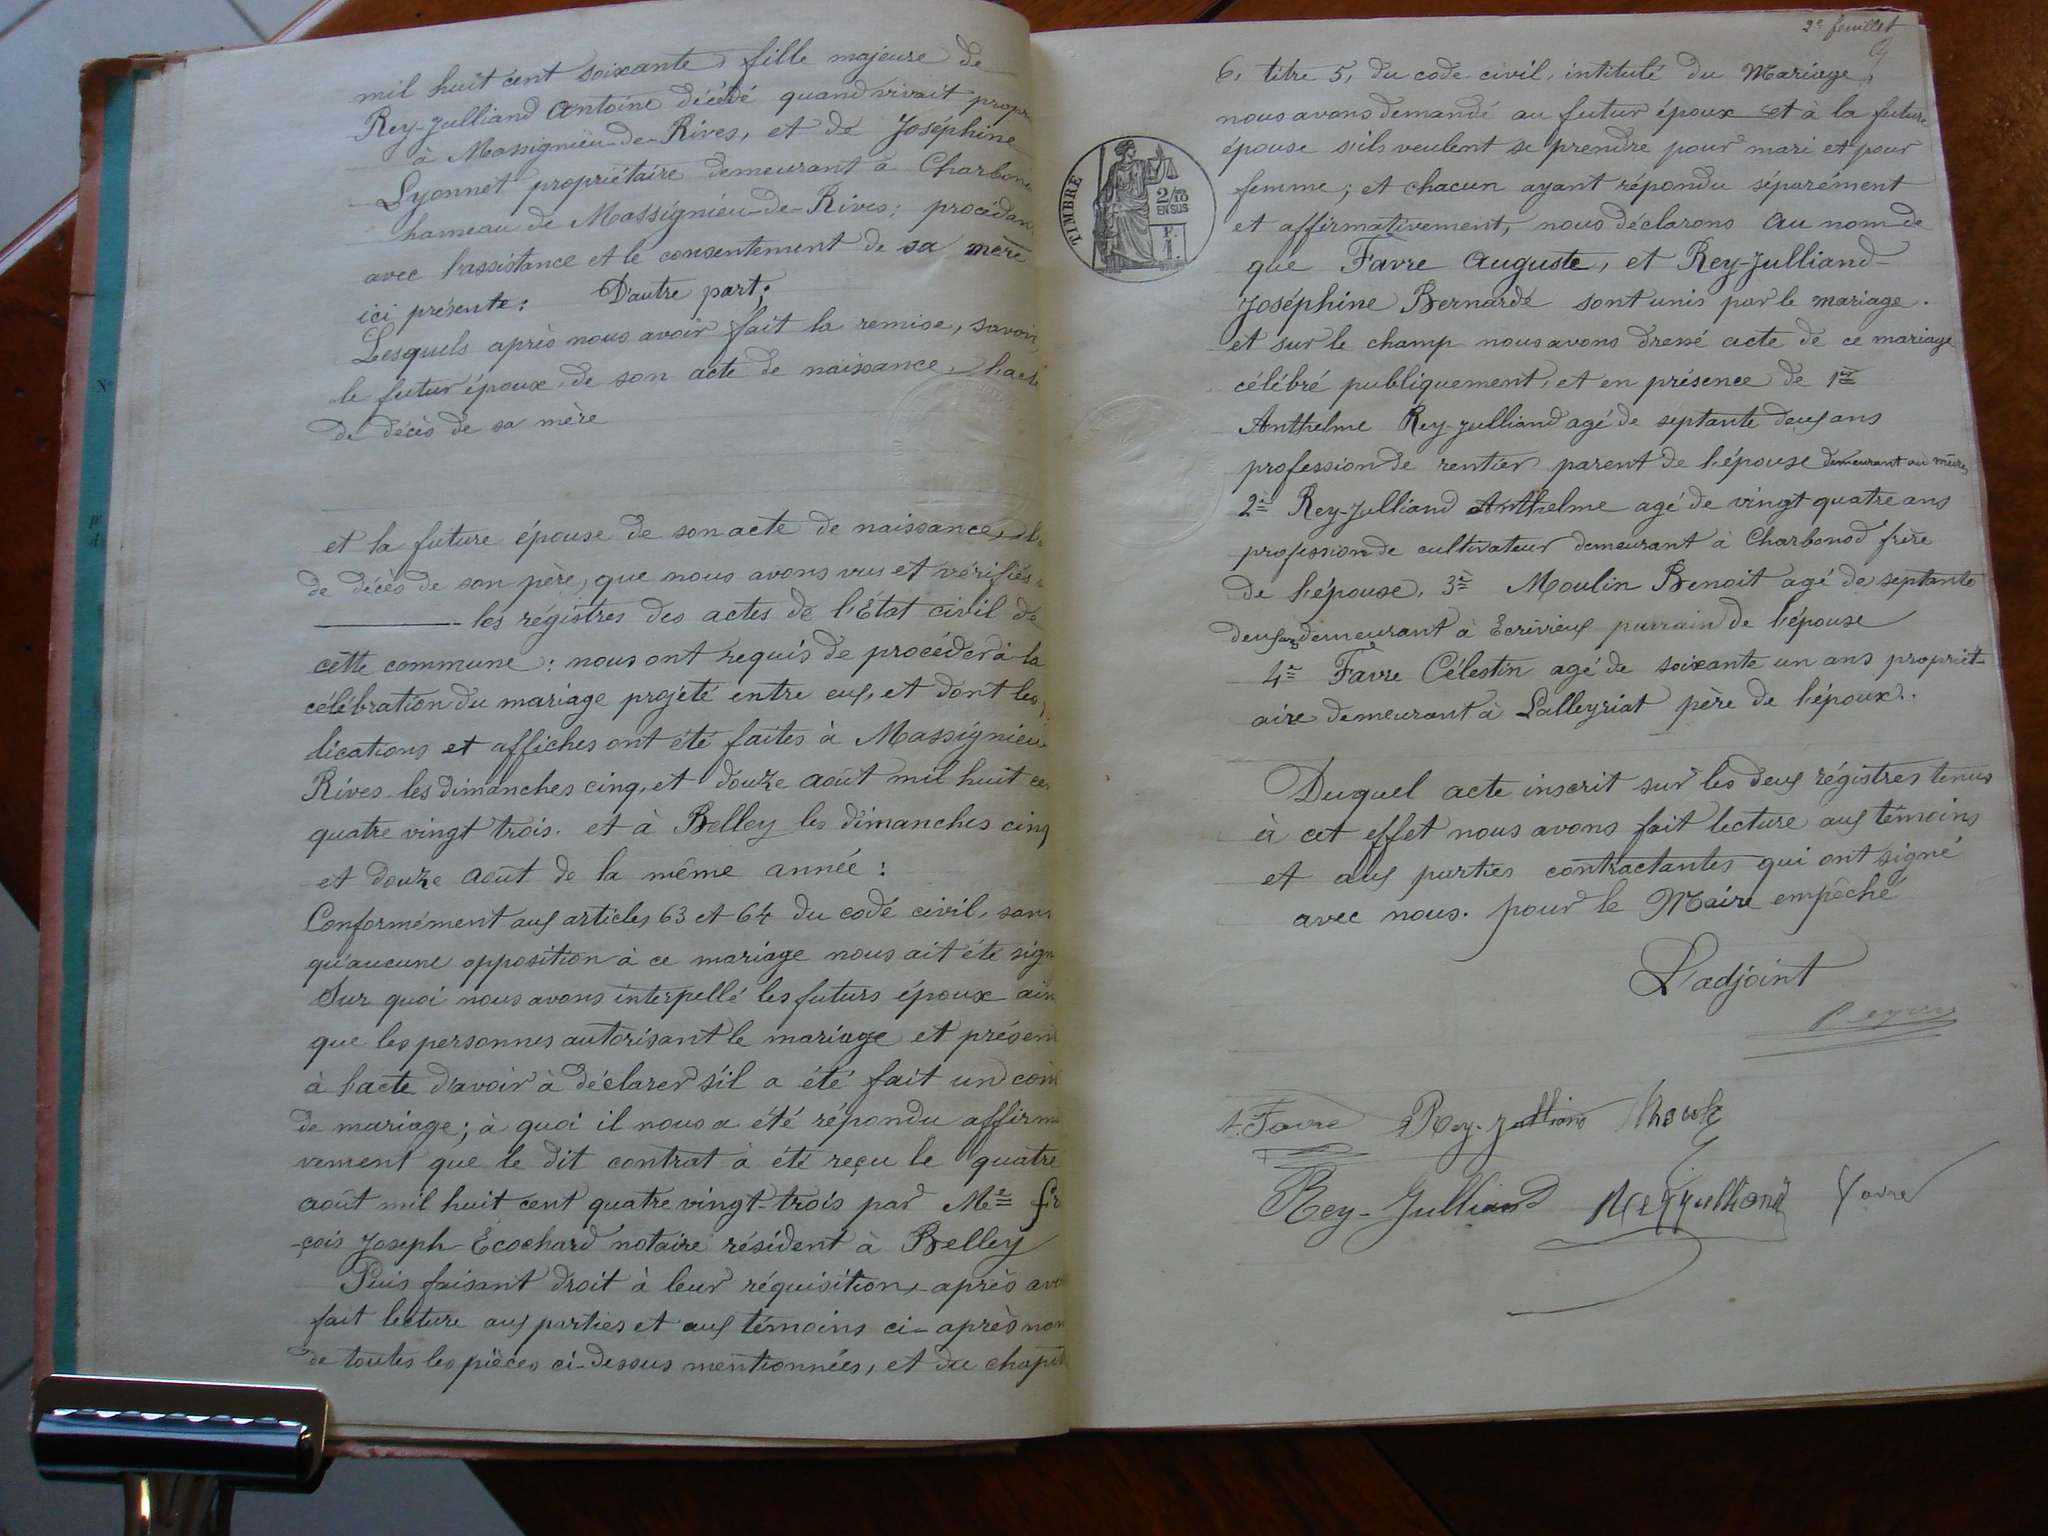 mil huit cent soixante, fille majeure de
Rey-Julliand Antoine décédé quand vivait propr
à Massignieu-de-Rives, et de Joséphine
Lyonnet propriétaire demeurant à Charbon
hameau de Massignieu-de-Rives; procédan
avec l'assistance et le consentement de sa mère
ici présente: D'autre part;
Lesquels après nous avoir fait la remise, savoir,
le futur époux de son acte de naissance, l'acte
de décès de sa mère
et la future épouse de son acte de naissance,
de décès de son père, que nous avons vus et vérifiés
les régistres des actes de l'État civil de
cette commune: nous ont requis de procéder à la
célébration du mariage projeté entre eux, et dont les
lications et affiches ont été faites à Massignieu
Rives les dimanches cinq, et douze août mil huit ce
quatre vingt trois. et à Belley les dimanches cinq
et douze août de la même année:
Conformément aux articles 63 et 64 du code civil, sans
qu'aucune opposition à ce mariage nous ait été sign
Sur quoi nous avons interpellé les futurs époux ain
que les personnes autorisant le mariage et présent
à l'acte d'avoir à déclarer s'il a été fait un con
de mariage; à quoi il nous a été répondu affirm
vement que le dit contrat à été reçu le quatre
août mil huit cent quatre vingt-trois par Me fr
-çois Joseph Ecochard notaire résident à Belley
Puis faisant droit à leur réquisition, après avo
fait lecture aux parties et aux témoins ci-après nom
de toutes les pièces ci-dessus mentionnées, et du chapit
2e feuillet
6, titre 5, du code civil, intitulé du Mariage,
nous avons demandé au futur époux et à la future
épouse s'ils veulent se prendre pour mari et pour
femme; et chacun ayant répondu séparément
et affirmativement, nous déclarons au nom de
que Favre Auguste, et Rey-Julliand
Joséphine Bernarde sont unis par le mariage.
et sur le champ nous avons dressé acte de ce mariage
célébré publiquement, et en présence de 1er
Anthelme Rey-Julliand agé de septante deux ans
profession de rentier parent de l'épouse demeurant au même
2e Rey-Julliand Anthelme agé de vingt quatre ans
profession de cultivateur demeurant à Charbonod frère
de l'épouse. 3e Moulin Benoit agé de septante
deux ans demeurant à Ecrivieux parrain de l'épouse
4e Favre Célestin agé de soixante un ans propriét-
aire demeurant à Lalleyriat père de l'époux.
Duquel acte inscrit sur les deux régistres tenus
à cet effet nous avons fait lecture aux témoins
et aux parties contractantes qui ont signé
avec nous. pour le Maire empêché
L'adjoint
A. Favre Rey-Julliand
Rey-Julliand Reyjulliand Favre
TIMBRE
2/10
EN SUS
F.
1.